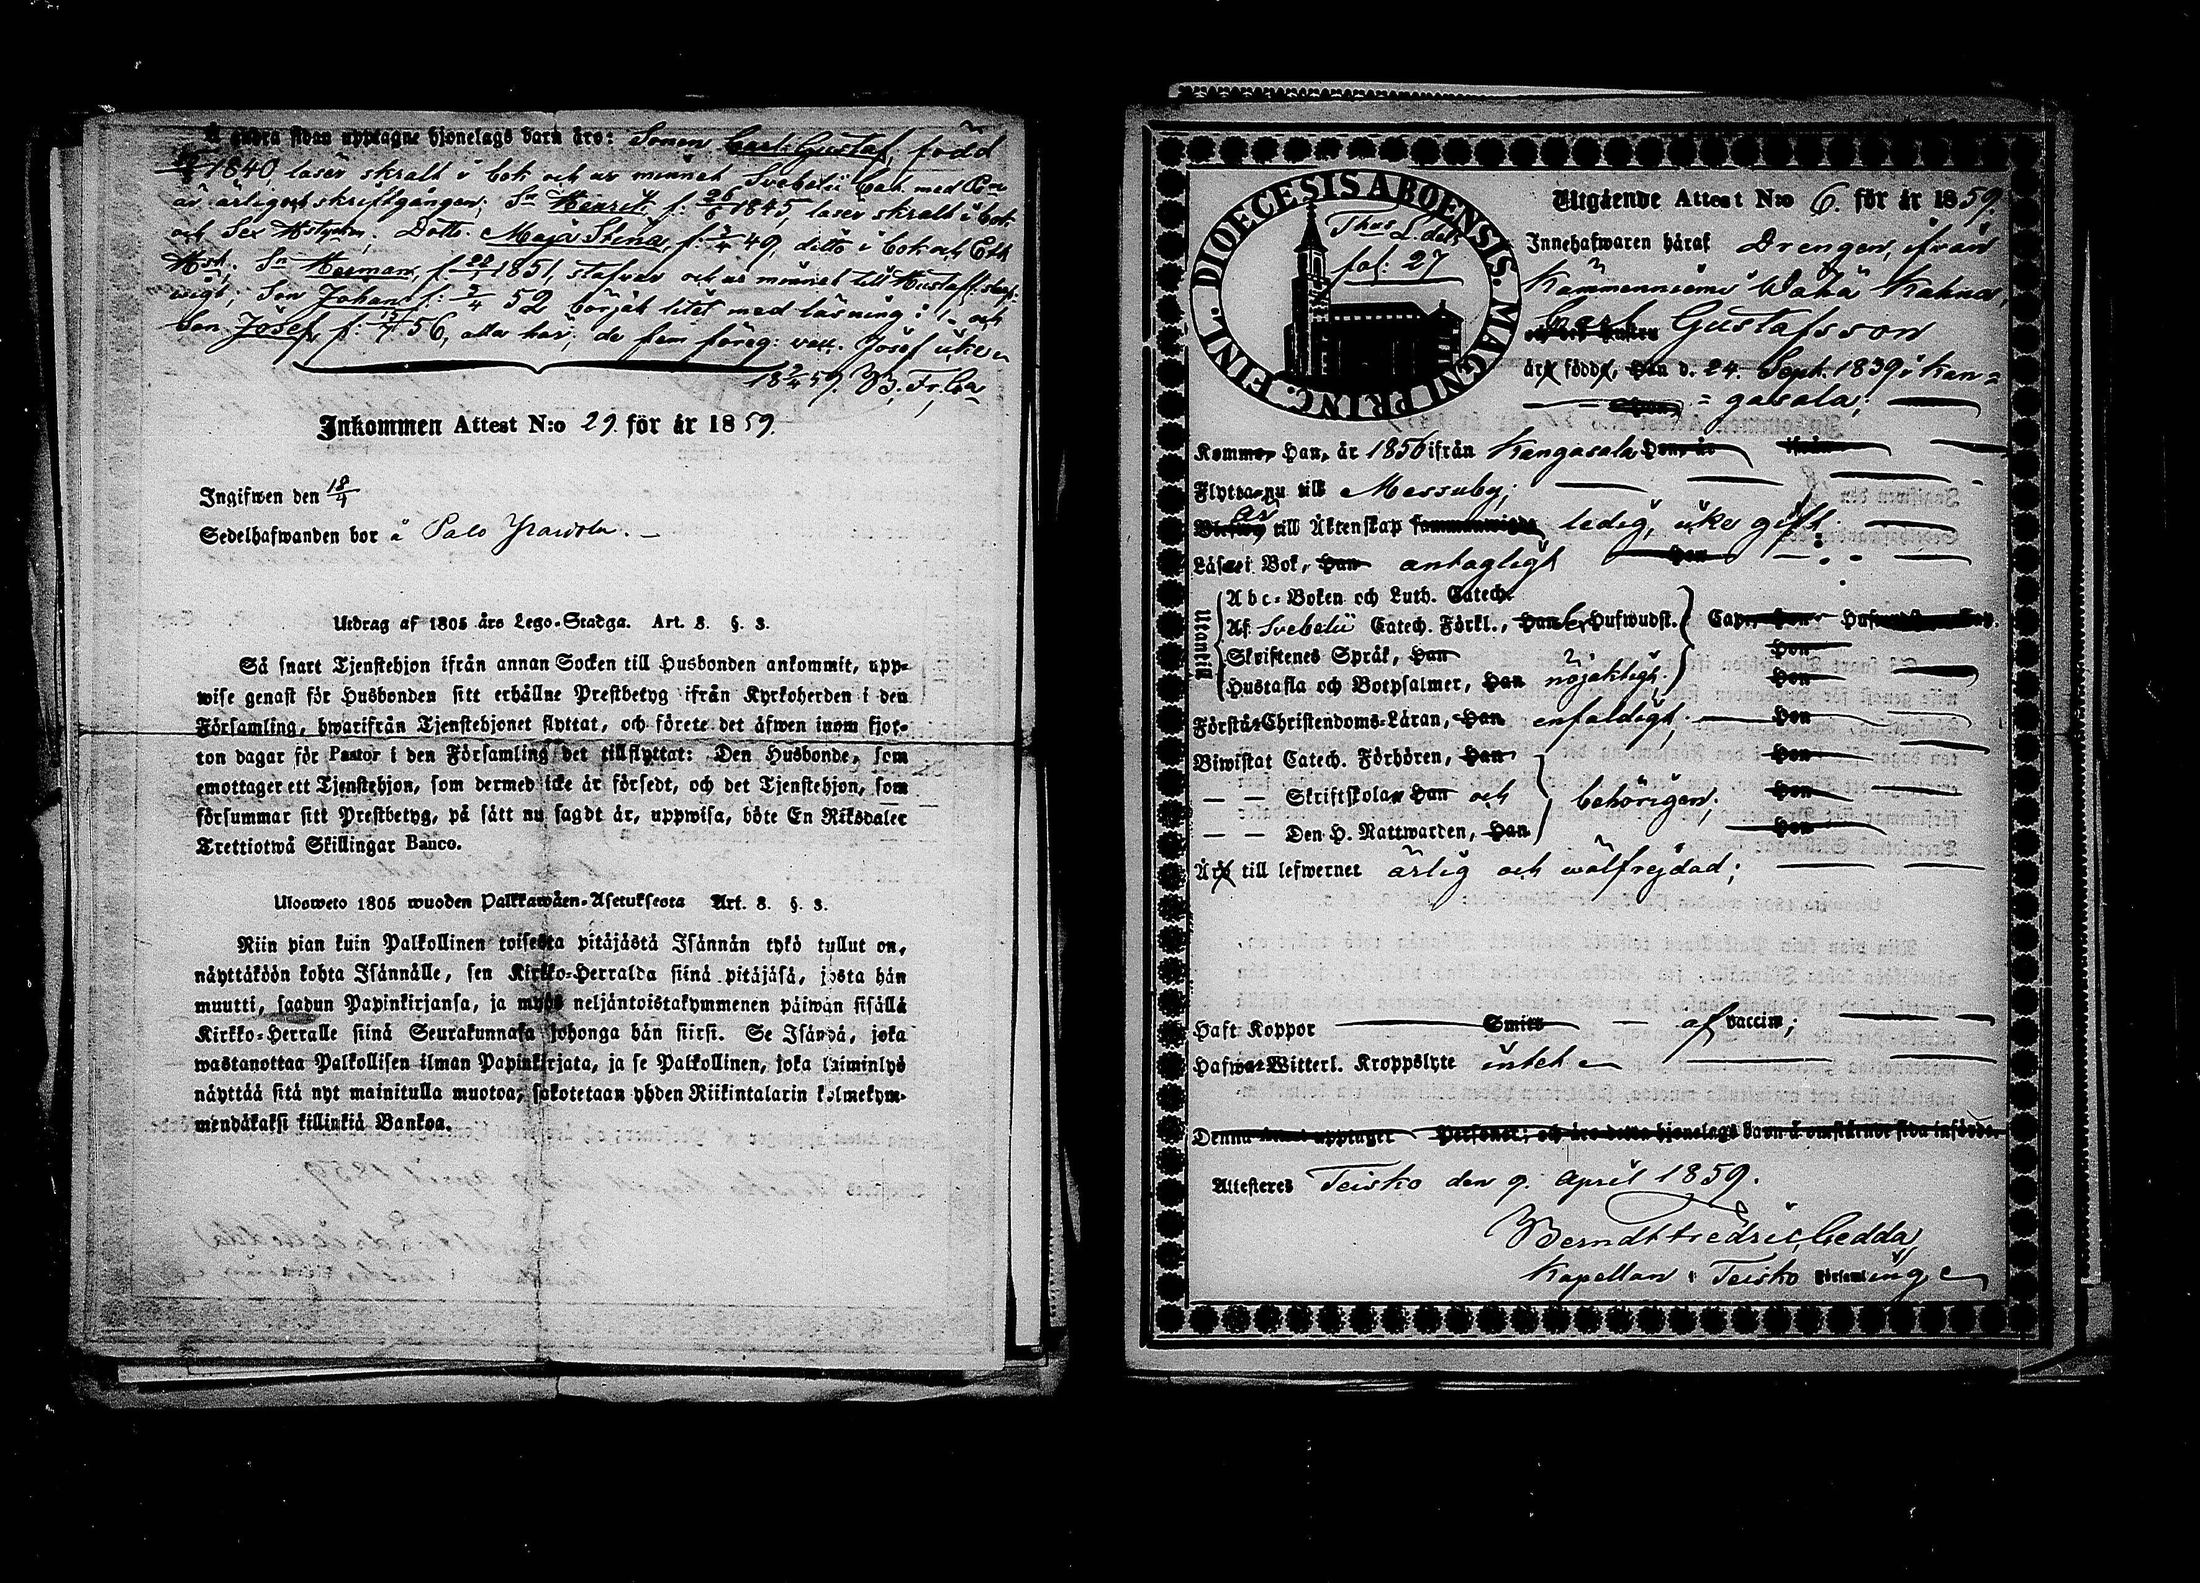 Å andra sidan upptagne hjonelags barn äro: Sonen Carl Gustaf, född
1840, läser skralt i bok och ur minnet Svebelii Cat. med
är årligen skriftgången; Sn Henrik f: 26/6 1845, läser skralt i bok
och Sex Hstycken. Dottr. Maja Stina, f: 2/4 49, ditto i bok och
Hst. Sn Herman, f. 1851, stafvar och ur minnet till Hustafl:
wigt; Son Johan f: 3/4 52 börjat litet med läsning: och
Son Josef, f: 56, alla har, de fem föreg: vacc. Josef icke
18 2/4 59. B. Fr. Ce
Inkommen Attest N:o 29. för år 1859.
Ingifwen den 18/4
Sedelhafwanden bor å Palo Yrawola. —
Utdrag af 1805 års Lego-Stadga. Art. 8. §. 3.
Så snart Tjenstehjon ifrån annan Socken till Husbonden ankommit, upp-
wise genast för Husbonden sitt erhållne Prestbetyg ifrån Kyrkoherden i den
Församling, hwarifrån Tjenstehjonet flyttat, och förete det äfwen inom fjor-
ton dagar för Pastor i den Församling det tillflyttat: Den Husbonde, som
emottager ett Tjenstehjon, som dermed icke är försedt, och det Tjenstehjon, som
försummar sitt Prestbetyg, på sätt nu sagdt är, uppwisa, böte En Riksdaler
Trettiotwå Skillingar Banco.
Uloswеto 1805 wuoden Palkkawäen-Asetuksesta Art. 8. §. 3.
Niin pian kuin Palkollinen toisesta pitäjästä Isännän tykö tullut on,
näyttäköön kohta Isännälle, sen Kirkko-Herralda siinä pitäjäsä, josta hän
muutti, saadun Papinkirjansa, ja myös neljäntoistakymmenen päiwän sisällä
Kirkko-Herralle siinä Seurakunnasa johonga hän siirsi. Se Isändä, joka
wastanottaa Palkollisen ilman Papinkirjata, ja se Palkollinen, joka laiminlyö
näyttää sitä nyt mainitulla muotoa, sakotetaan yhden Riikintalarin kolmekym-
mendäkaksi killinkiä Bankoa.
DIOECESIS ABOENSIS. MAGNI PRINC. FINL.
fol: 27
Utgående Attest N:o 6. för år 1859.
Innehafwaren häraf Drengen, ifrån
Kämmenniemi Wähä Kahnas,
Carl Gustafsson
är född, d. 24. Sept. 1839 i Kan-
= gasala;
Kommo, Han, år 1856 ifrån Kangasala Hon, år ifrån
Flytta nu till Messuby;
är till Äktenskap ledig, icke gift.
Läser i Bok, Han antagligt Hon
Utantill
Abc-Boken och Luth. Catech.
Af Svebelii Catech. Förkl., Han Hufwudst. Cap. Hon
Skriftenes Språk, Han Hon
Hustafla och Botpsalmer, Han nöjaktligt. Hon
Förstår Christendoms-Läran, Han enfaldigt; Hon
Biwistat Catech. Förhören, Han Hon
— — Skriftskolan Han och behörigen; Hon
— — Den H. Nattwarden, Han Hon
Är till lefwernet ärlig och wälfrejdad;
Haft Koppor Smitt — af vaccin;
Hafwer Witterl. Kroppslyte intet
Denna Attest upptager Personer; och äro detta hjonelags barn å omstående sida införde.
Attesteres Teisko den 9. April 1859.
Berndt Fredric Cedda
Kapellan i Teisko Församling